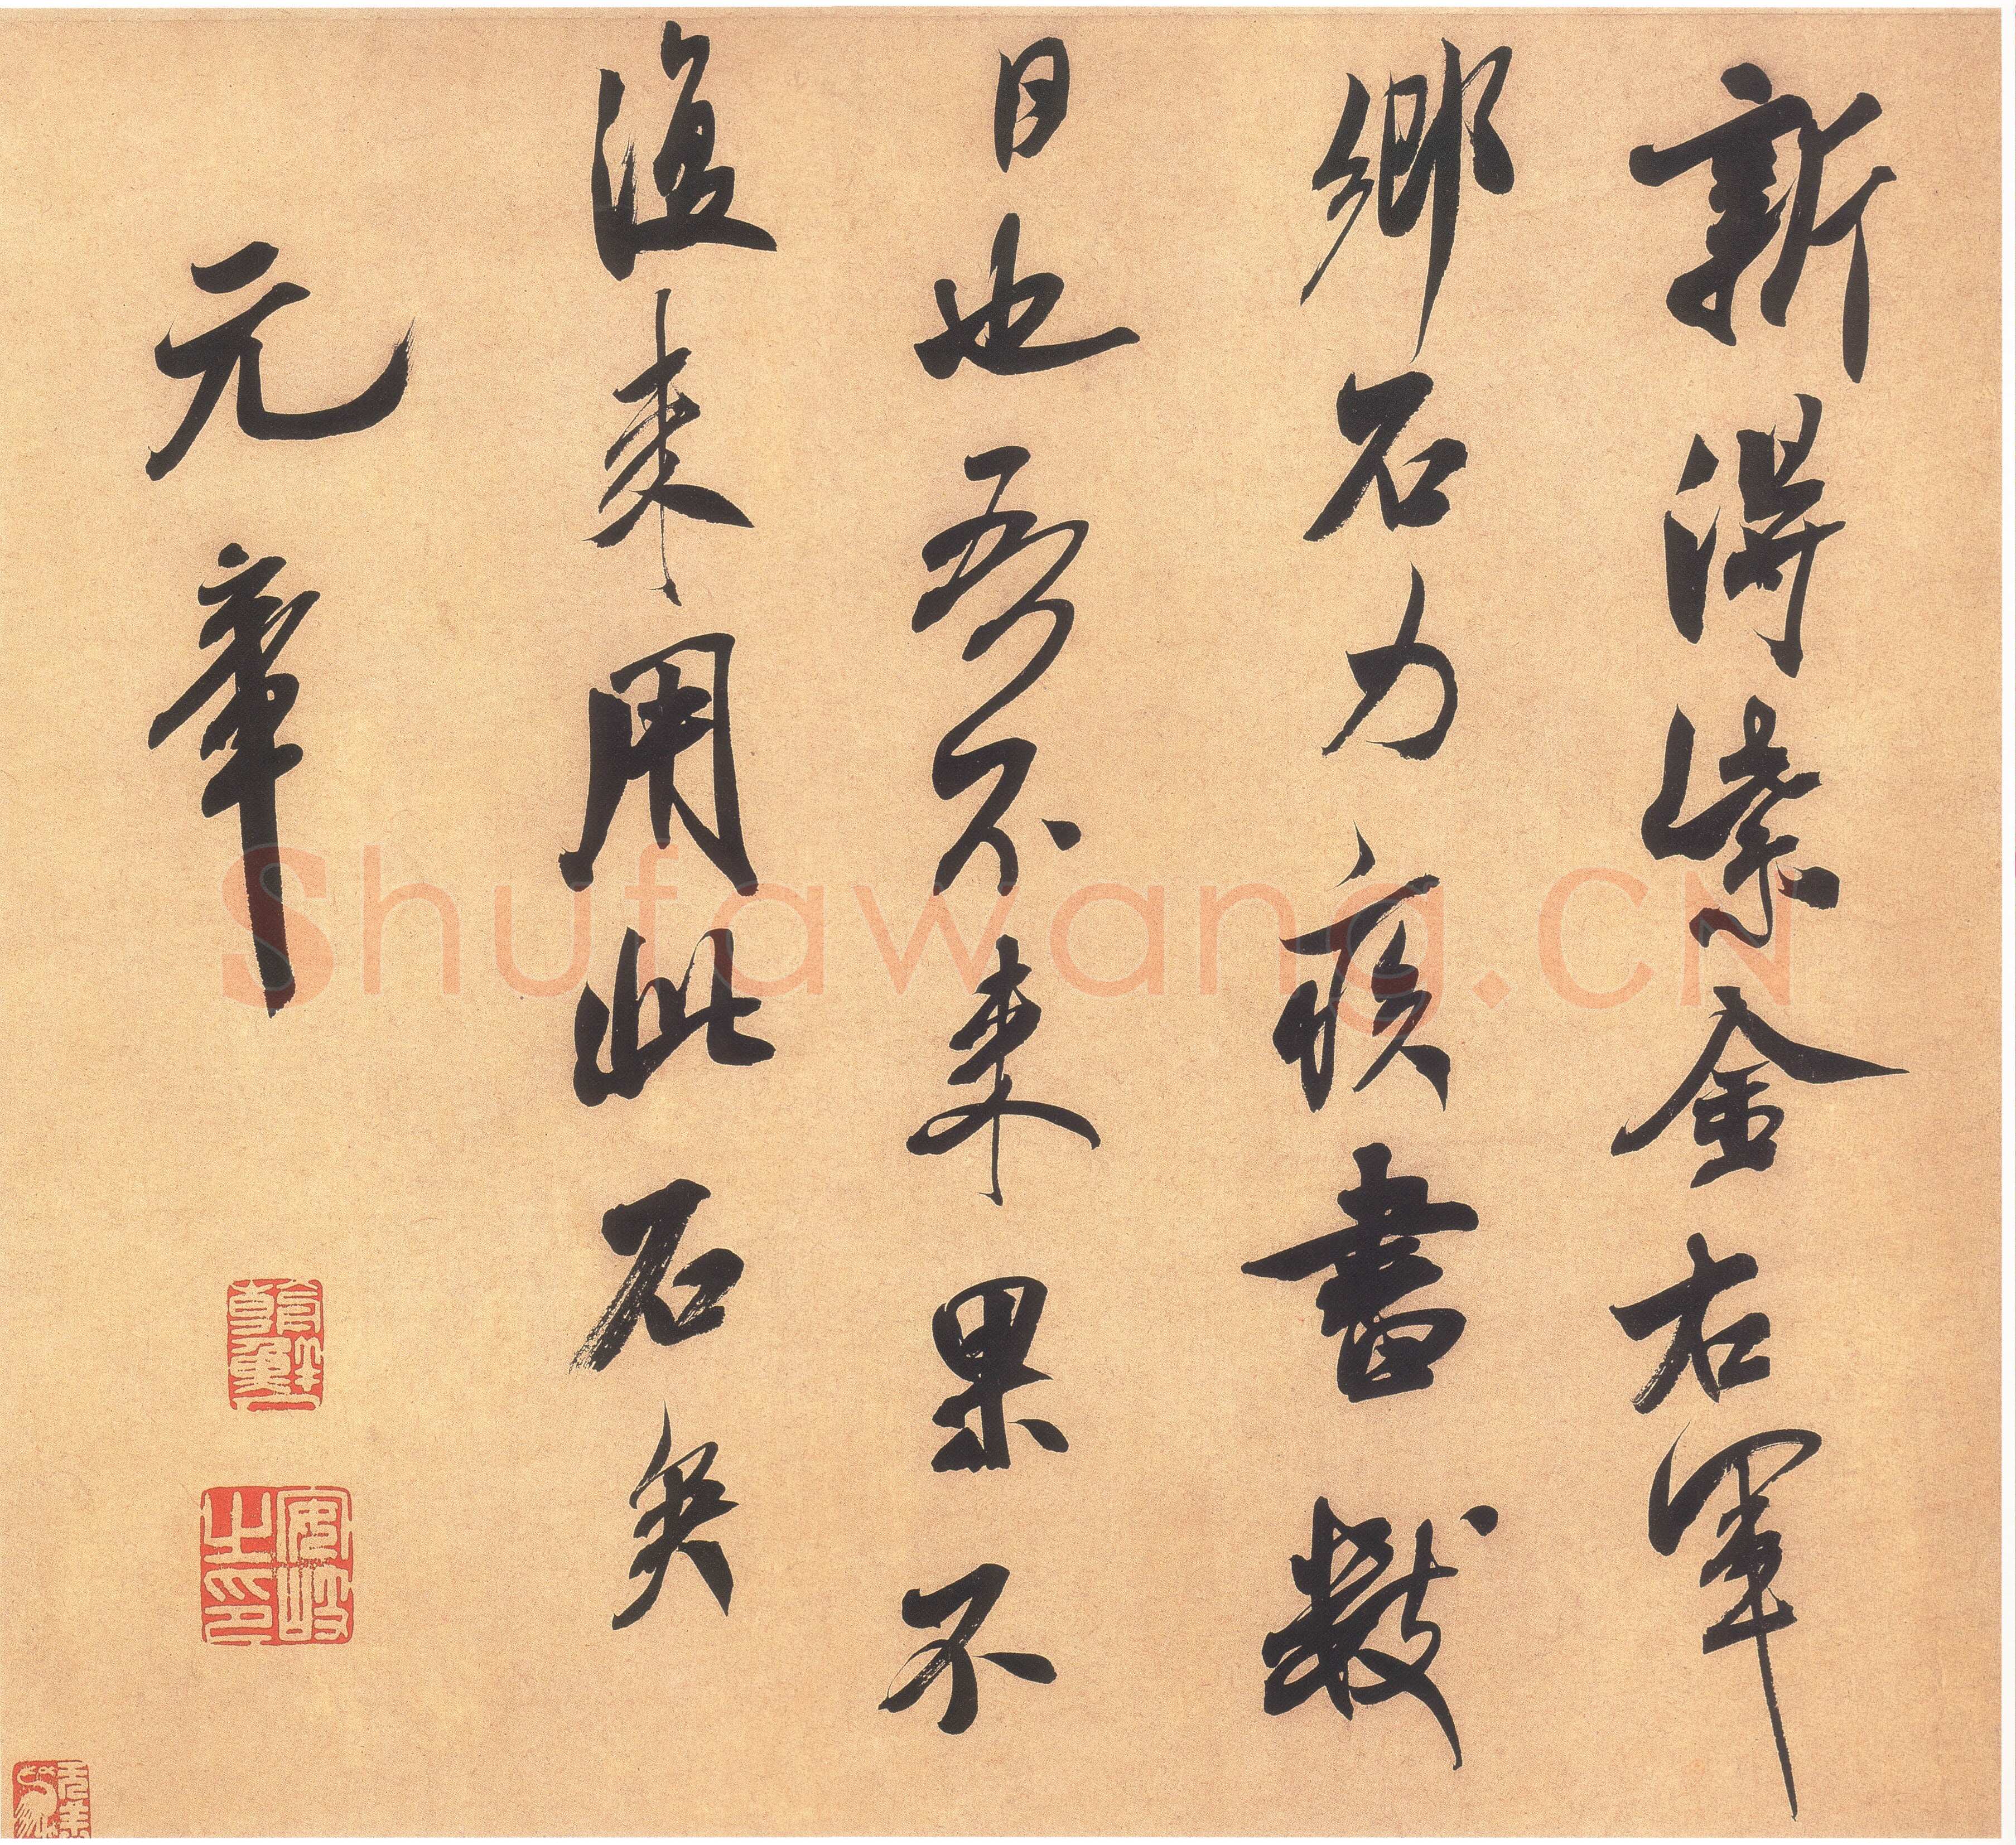 新得紫金右軍
鄉石力疾書數
日也吾不來果不
復來用此石矣
元章
安岐之印
Shufawang.CN